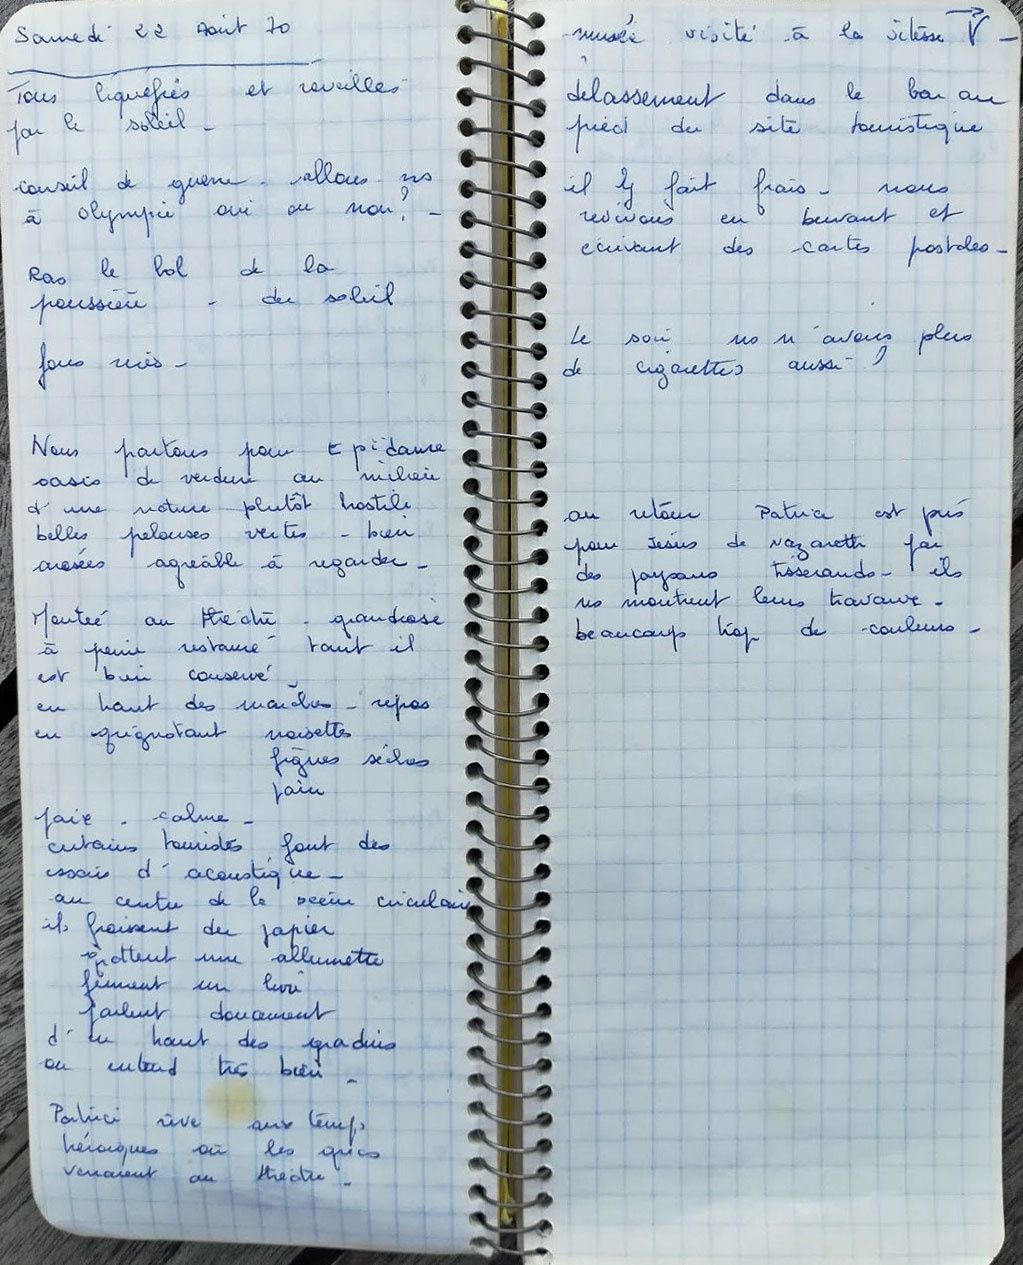 Samedi 22 Août 70
Tous liquéfiés et réveillés
par le soleil -
conseil de guerre - allons ns
à Olympie oui ou non? -
Ras le bol de la
poussière - du soleil
Nous partons pour Epidaure
oasis de verdure au milieu
d'une nature plutôt hostile
belles pelouses vertes - bien
arosées agréable à regarder -
Montée au théâtre - grandiose
à peine restauré tant il
est bien conservé
en haut des marches - repos
en grignotant noisettes
figues sèches
pain
paix - calme -
certains touristes font des
essais d'acoustique -
au centre de la scène circulaire
ils froissent du papier
frottent une allumette
ferment un livre
parlent doucement
d'en haut des gradins
on entend très bien -
Patrice rêve aux temps
héroïques où les grecs
venaient au théâtre -
musée visité à la vitesse V -
délassement dans le bar au
pied du site touristique
il y fait frais - nous
revivons en buvant et
écrivant des cartes postales -
Le soir ns n'avons plus
de cigarettes aussi
au retour Patrice est pris
pour Jésus de Nazareth par
des paysans tisserands - ils
ns montrent leurs travaux -
beaucoup trop de couleurs -